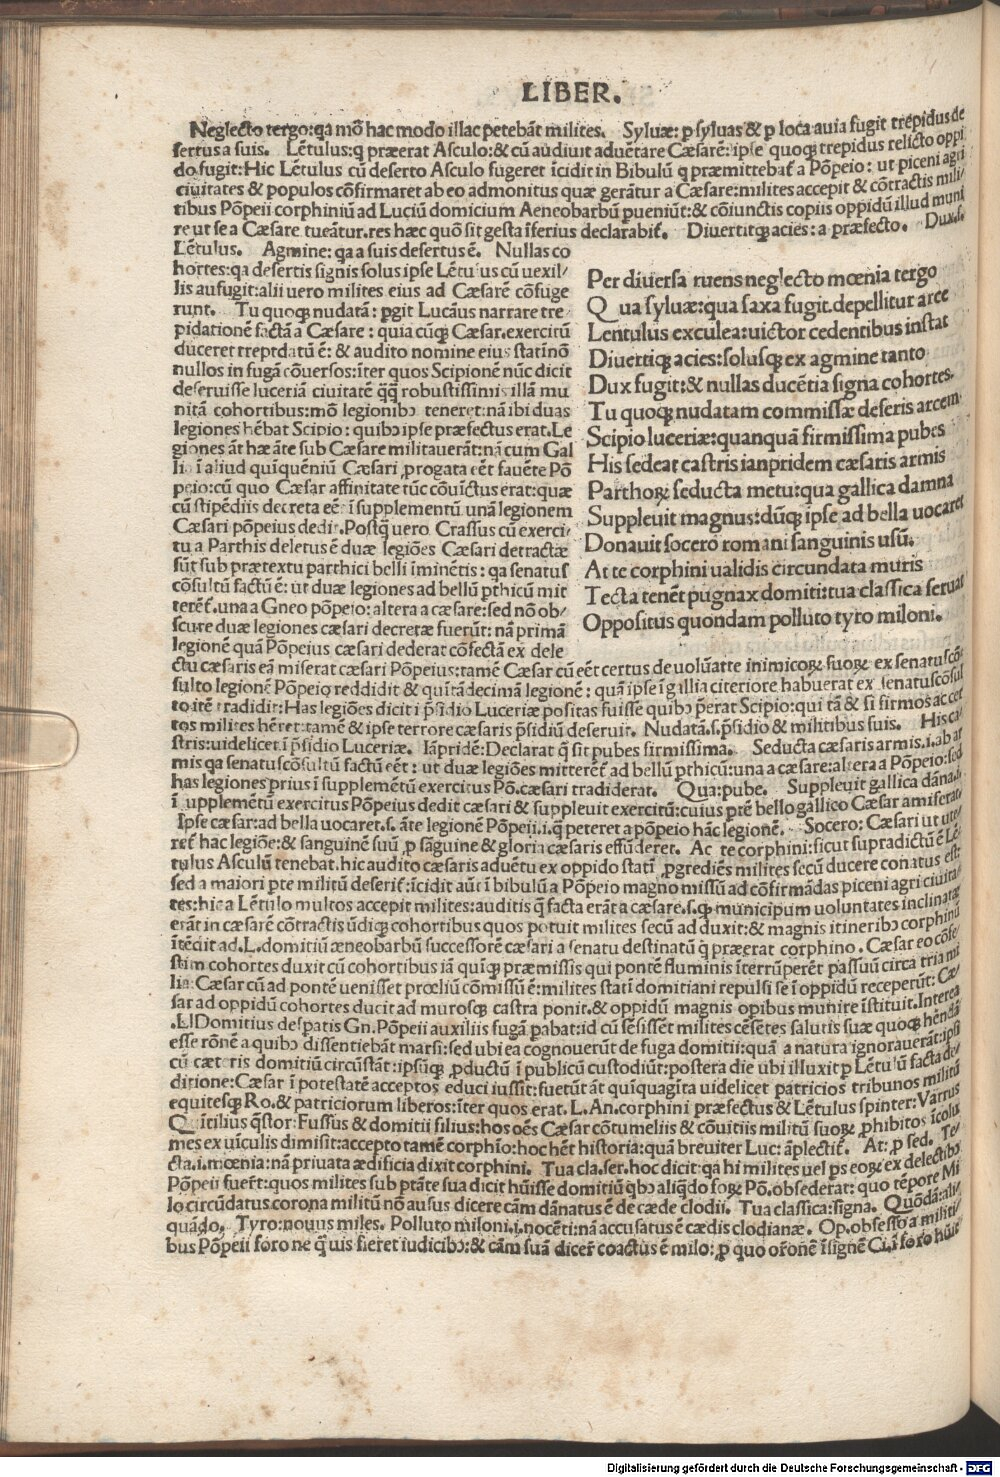 LIBER.
Neglecto tergo:qa mō hac modo illac petebāt milites. Syluæ: p syluas & p loca auia fugit trepidus de
sertus a suis. Lētulus:q præerat Asculo:& cū audiuit aduētare Cæsarē: ipse quoqꝫ trepidus relicto oppi
do fugit: Hic Lētulus cū deserto Asculo fugeret īcidit in Bibulū q præmittebat̄ a Pōpeio: ut piceni agri
ciuitates & populos cōfirmaret ab eo admonitus quæ gerātur a Cæsare:milites accepit & cōtractis mili
tibus Pōpeii corphiniū ad Luciū domicium Aeneobarbū pueniūt:& cōiunctis copiis oppidū illud muni
re ut se a Cæsare tueātur.res hæc quō sit gesta īferius declarabit̄. Diuertitqꝫ acies: a præfecto. Dux.s.
Lētulus. Agmine: qa a suis desertus ē. Nullas co
hortes:qa desertis signis solus ipse Lētulus cū uexil/
lis aufugit:alii uero milites eius ad Cæsarē cōfuge
runt. Tu quoqꝫ nudatā: ꝑgit Lucāus narrare tre
pidationē factā a Cæsare: quia cūqꝫ Cæsar.exercitū
duceret trepidatū ē: & audito nomine eius statī nō
nullos in fugā cōuersos:īter quos Scipionē nūc dicit
deseruisse luceriā ciuitatē q̄q̄ robustissimis illā mu
nitā cohortibus:mō legionibꝫ teneret:nā ibi duas
legiones hēbat Scipio: quibꝫ ipse præfectus erat.Le
giones āt hæ āte sub Cæsare militauerāt:nā cum Gal
lia ī aliud quīquēniū Cæsari ꝓrogata eēt fauēte Pō
peio:cū quo Cæsar affinitate tūc cōuīctus erat:quæ
cū stipēdiis decreta eē ī supplementū unā legionem
Cæsari pōpeius dedit.Postq̄ uero Crassus cū exerci/
tu a Parthis deletus ē duæ legiōes Cæsari detractæ
sūt sub prætextu parthici belli īminētis: qa senatus
cōsultū factū ē: ut duæ legiones ad bellū pthicū mit
terēt̄.una a Gneo pōpeio:altera a cæsare:sed nō ob/
scure duæ legiones cæsari decretæ fuerūt: nā primā
legionē quā Pōpeius cæsari dederat cōfectā ex dele
Per diuersa ruens neglecto mœnia tergo
Qua syluæ:qua saxa fugit.depellitur arce
Lentulus exculea:uictor cedentibus instat
Diuertitqꝫ acies:solusqꝫ ex agmine tanto
Dux fugit:& nullas ducētia signa cohortes.
Tu quoqꝫ nudatam commissæ deseris arcem
Scipio luceriæ:quanquā firmissima pubes
His sedeat castris ianpridem cæsaris armis
Parthoꝝ seducta metu:qua gallica damna
Suppleuit magnus:dūqꝫ ipse ad bella uocaret
Donauit socero romani sanguinis usū.
At te corphini ualidis circundata muris
Tecta tenēt pugnax domiti:tua classica seruat
Oppositus quondam polluto tyro miloni.
ctu cæsaris eā miserat cæsari Pōpeius:tamē Cæsar cū eēt certus de volūatte inimicoꝝ suoꝝ ex senatus cō
sulto legionē Pōpeio reddidit & quītā decimā legionē: quā ipse ī gallia citeriore habuerat ex senatuscōsul
to itē tradidit:Has legiōes dicit ī p̄sidio Luceriæ positas fuisse quibꝫ p̄erat Scipio:qui tā & si firmos ac cer
tos milites hēret:tamē & ipse terrore cæsaris p̄sidiū deseruit. Nudatā.s.p̄sidio & militibus suis. His ca
stris:uidelicet ī p̄sidio Luceriæ. Iāpridē:Declarat q̄ sit pubes firmissima. Seducta cæsaris armis.i.ab ar
mis qa senatuscōsultū factū eēt: ut duæ legiōes mitterēt̄ ad bellū pthicū:una a cæsare:altera a Pōpeio:sed
has legiones prius ī supplemētū exercitus Pō.cæsari tradiderat. Qua:pube. Suppleuit gallica dāna.i.
ī supplemētū exercitus Pōpeius dedit cæsari & suppleuit exercitū:cuius ptē bello gallico Cæsar amiserat.
Ipse cæsar:ad bella uocaret.s. āte legionē Pōpeii.i.q̄ peteret a pōpeio hāc legionē. Socero: Cæsari ut ute
ret̄ hac legiōe:& sanguinē suū p sāguine & gloria cæsaris effūderet. Ac te corphini:sicut supradictū ē Lē
tulus Asculū tenebat.hic audito cæsaris aduētu ex oppido statī ꝓgrediēs milites secū ducere conatus est:
sed a maiori pte militū deserit̄:īcidit aūt ī bibulū a Pōpeio magno missū ad cōfirmādas piceni agri ciuita
tes:hic a Lētulo multos accepit milites:auditis q̄ facta erāt a cæsare.s.qꝫ municipum uoluntates inclinatæ
erāt in cæsarē cōtractis ūdiqꝫ cohortibus quos potuit milites secū ad duxit:& magnis itineribꝫ corphinū
ītēdit ad.L.domitiū æneobarbū successorē cæsari a senatu destinatū q̄ præerat corphino. Cæsar eo cōfe
stim cohortes duxit cū cohortibus iā quīqꝫ præmissis qui pontē fluminis īterrūperēt passuū circa tria mi
lia: Cæsar cū ad pontē uenisset prœliū cōmissū ē:milites statī domitiani repulsi se ī oppidū receperūt: Cæ
sar ad oppidū cohortes ducit ad murosqꝫ castra ponit.& oppidū magnis opibus munire īstituit.Interea
.L.Domitius despatis Gn.Pōpeii auxiliis fugā pabat:id cū sēsissēt milites cēsētes salutis suæ quoqꝫ hēndā
esse rōnē a quibꝫ dissentiebāt marsi:sed ubi ea cognouerūt de fuga domitii:quā a natura ignorauerāt:ipsi
cū cæteris domitiū circūstāt:ipsūqꝫ ꝓductū ī publicū custodiūt:postera die ubi illuxit p Lētulū facta de/
ditione:Cæsar ī potestatē acceptos educi iussit:fuerūt āt quīquagīta uidelicet patricios tribunos militū
equitesqꝫ Ro.& patriciorum liberos:īter quos erat.L.An.corphini præfectus & Lētulus spinter: Varrus
Quītilius q̄stor: Fussus & domitii filius:hos oēs Cæsar cōtumeliis & cōuitiis militū suoꝝ ꝓhibitos īcolu
mes ex uīculis dimisit:accepto tamē corphīo:hoc hēt historia:quā breuiter Luc: āplectit̄. At: ꝓ sed. Te/
cta.i.mœnia:nā priuata ædificia dixit corphini. Tua cla.ser.hoc dicit:qa hi milites uel ps eoꝝ ex delectibꝫ
Pōpeii fuert̄:quos milites sub ptāte sua dicit hūisse domitiū qbꝫ aliq̄do foꝝ Pō.obsederat: quo tēpore Mi
lo circūdatus.corona militū nō ausus dicere cām dānatus ē de cæde clodii. Tua classica:signa. Quōdā:ali/
quādo. Tyro:nouus miles. Polluto miloni.i.nocēti:nā accusatus ē cædis clodianæ. Op.obsesso a militi/
bus Pōpeii foro ne q̄ uis fieret iudicibꝫ:& cām suā dicer̄ coactus ē milo: ꝓ quo orōnē īsignē Ci.ī foro hūit
Digitalisierung gefördert durch die Deutsche Forschungsgemeinschaft - DFG